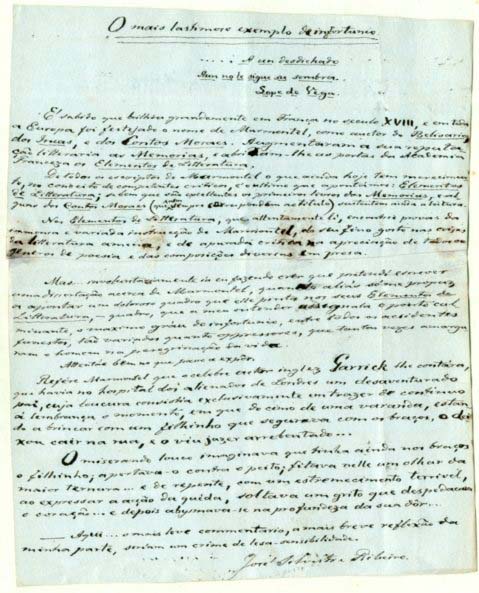 O mais lastimoso exemplo de infortunio
..... A un desdichado
Aun no le sigue su sombra.
Lope de Vega
É sabido que brilhou grandemente em França no seculo XVIII, e em toda
a Europa foi festejado o nome de Marmontel, como auctor do Belisario,
dos Incas, e dos Contos Moraes. Augmentaram a sua reputa-
ção litteraria as Memorias, e abriram-lhe as portas da Academia
Franceza os Elementos de Litteratura.
De todos os escriptos de Marmontel o que ainda hoje tem mereci-
to, no conceito de imparciaes criticos, continua a ser Elementos
de Litteratura, além que são os primeiros tomos das Memorias, e al-
guns dos Contos Moraes (que correspondem ao titulo) sustentam ainda a leitura.
Nos Elementos de Litteratura, que attentamente li, encontrei provas da
e variada instrucção de Marmontel, do seu fino gosto nas coisas
da litteratura amena, e de apurada critica na apreciação de todos os
generos de poesia e das composições diversas em prosa.
Mas involuntariamente ia eu fazendo crer que pretendi escrever
uma dissertação acerca de Marmontel, quando aliás só me propuz
a apontar um doloroso quadro que elle pinta nos seus Elementos de
Litteratura, – quadro, que a meu entender assegura e porto cul-
minante, o maximo gráu de infortunio, entre todos os accidentes
funestos, tão variados quanto oppressores, que tantas vezes amargu-
ram o homem na peregrinação da vida.
Attentae bem no que passo a expôr.
Refere Marmontel que o celebre actor inglez Garrick lhe contára,
que havia no hospital dos alienados de Londres um desventurado
pai, cuja loucura consistia exclusivamente em trazer de continuo
á lembrança o momento, em que de cima de uma varanda, estan-
do a brincar com um filhinho que segurava com os braços, o dei-
xou cair na rua, e o viu jazer arrebentado...
O miserando louco imaginava que tinha ainda nos braços
o filhinho, apertava-o contra o peito, fitava nelle um olhar da
maior ternura... e de repente, com um estremecimento terrivel,
ao expressar a acção da queda, soltava um grito que despedaçava
o coração... e depois abysmava-se na profundeza da sua dôr...
— Aqui... o mais leve commentario, a mais breve reflexão da
minha parte, seriam um crime de lesa-sensibilidade.
José Silvestre Ribeiro.